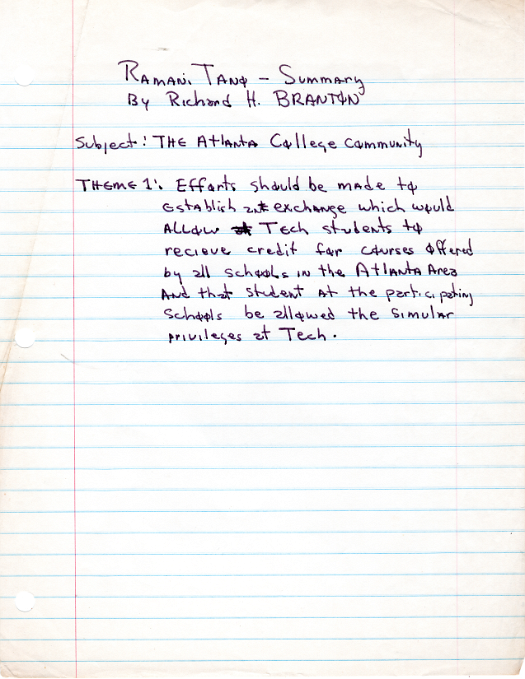 Ramani Tano - Summary
By Richard H. BRANTON
Subject: THE Atlanta College Community
THEME 1: Efforts should be made to
Establish exchange which would
Allow Tech students to
recieve credit for courses offered
by all schools in the Atlanta Area
And that student at the participating
Schools be allowed the simular
privileges at Tech.